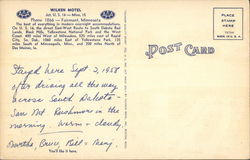 WILKEN MOTEL
Jct. U. S. 16 — Minn. 15
Phone 1066 — Fairmont, Minnesota
The best of everything in modern overnight accommodations.
On U. S. 16, the direct East-West Route to South Dakota Bad
Lands, Black Hills, Yellowstone National Park and the West
Coast. 400 miles West of Milwaukee, 425 miles east of Rapid
City, So. Dak., 1060 miles East of Yellowstone Park, 150
miles South of Minneapolis, Minn., and 200 miles North of
Des Moines, Ia.
POST CARD
PLACE
STAMP
HERE
Stayed here Sept 2, 1958
after driving all the way
across South Dakota —
Saw Mt Rushmore in the
morning. Warm — cloudy.
Bruce, Bill — Mary.
You'll like it here.